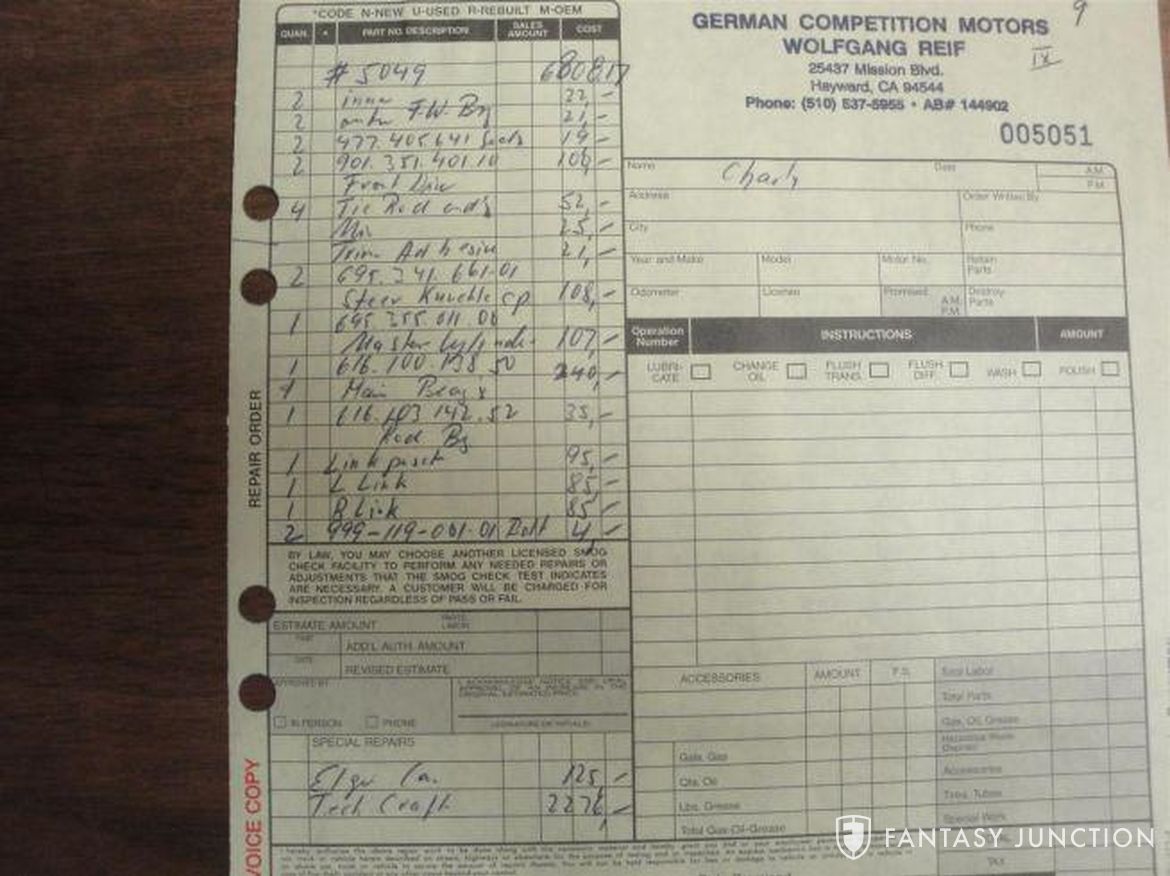 *CODE N-NEW U-USED R-REBUILT M-OEM
QUAN. * PART NO. DESCRIPTION SALES AMOUNT COST
# 5049 6808,17
2 inner 22,-
2 outer F.W. Bg 21,-
2 477.405.641 Seals 19,-
2 901.351.401.10
Front
4 Tie Rod end's 52,-
25,-
Trim Adhesive 21,-
2 695.341.661.01
Steer Knuckle cp 108,-
1 695.355.011.00
Master Cylinder 107,-
1 616.100.138.50 240,-
Main
1 616.103.142.52 35,-
Rod Bg
1 Link 95,-
1 L Link 85,-
1 R Link 85,-
2 999-119-001-01 Bolt 4,-
BY LAW, YOU MAY CHOOSE ANOTHER LICENSED SMOG
CHECK FACILITY TO PERFORM ANY NEEDED REPAIRS OR
ADJUSTMENTS THAT THE SMOG CHECK TEST INDICATES
ARE NECESSARY. A CUSTOMER WILL BE CHARGED FOR
INSPECTION REGARDLESS OF PASS OR FAIL.
ESTIMATE AMOUNT PARTS LABOR
TIME ADD'L AUTH. AMOUNT
DATE REVISED ESTIMATE
APPROVED BY
IN PERSON PHONE
(SIGNATURE OR INITIALS)
SPECIAL REPAIRS
125,-
Tech Craft 2276,-
REPAIR ORDER
VOICE COPY
GERMAN COMPETITION MOTORS
WOLFGANG REIF
25437 Mission Blvd.
Hayward, CA 94544
Phone: (510) 537-5955 • AB# 144902
9
IX
005051
Name Charly Date A.M. P.M.
Address Order Written By
City Phone
Year and Make Model Motor No. Retain Parts
Odometer License Promised A.M. P.M. Destroy Parts
Operation Number INSTRUCTIONS AMOUNT
LUBRI-CATE CHANGE OIL FLUSH TRANS. FLUSH DIFF. WASH POLISH
ACCESSORIES AMOUNT Total Labor
Total Parts
Gas, Oil, Grease
Hazardous Waste Disposal
Gals. Gas Accessories
Qts. Oil Tires, Tubes
Lbs. Grease Special Work
Total Gas-Oil-Grease
TAX
FANTASY JUNCTION